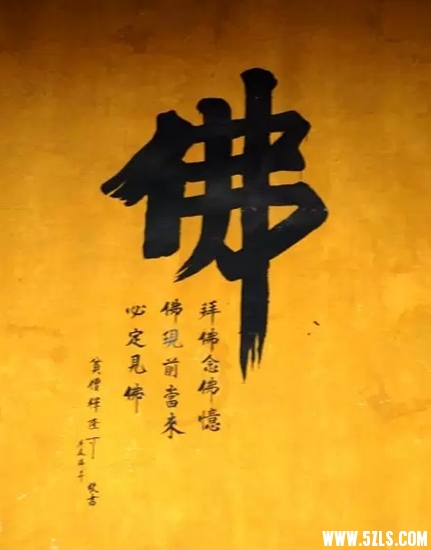 佛
拜佛念佛憶
佛現前當來
必定見佛
貧僧釋隆
敬書
WWW.5ZLS.COM